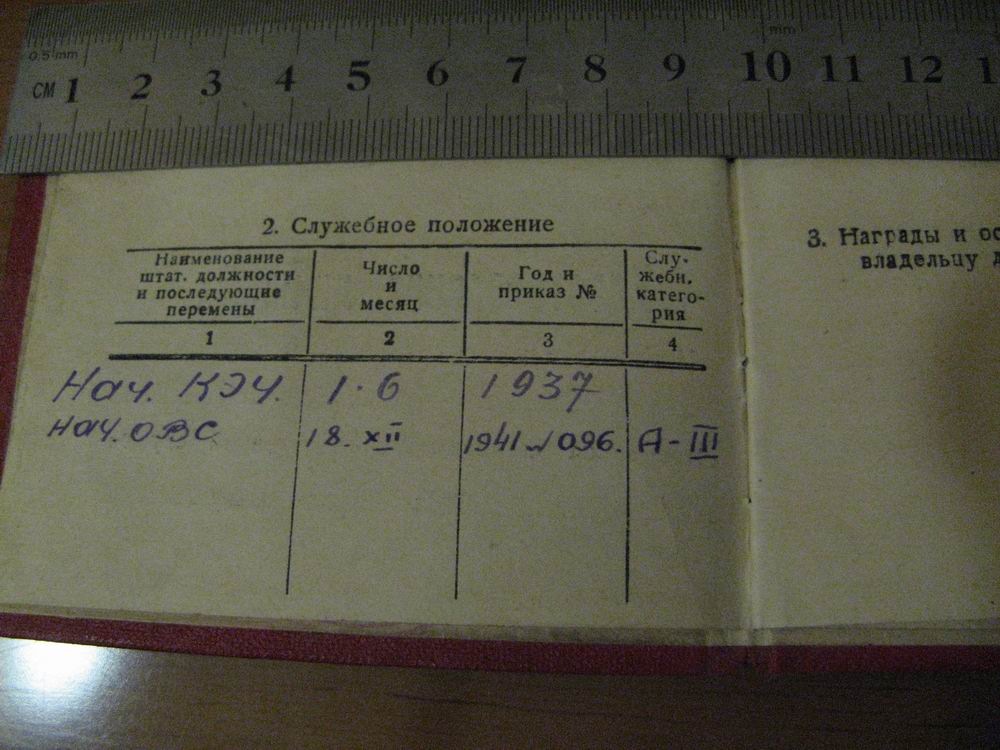 0.5 mm
mm
CM 1 2 3 4 5 6 7 8 9 10 11 12 1
2. Служебное положение
Наименование штат. должности и последующие перемены
Число и месяц
Год и приказ №
Слу-жебн. катего-рия
1 2 3 4
Нач. КЭЧ. 1·6 1937
Нач. ОВС 18. XII 1941 № 096. А-III
3. Награды и ос
владельцу д